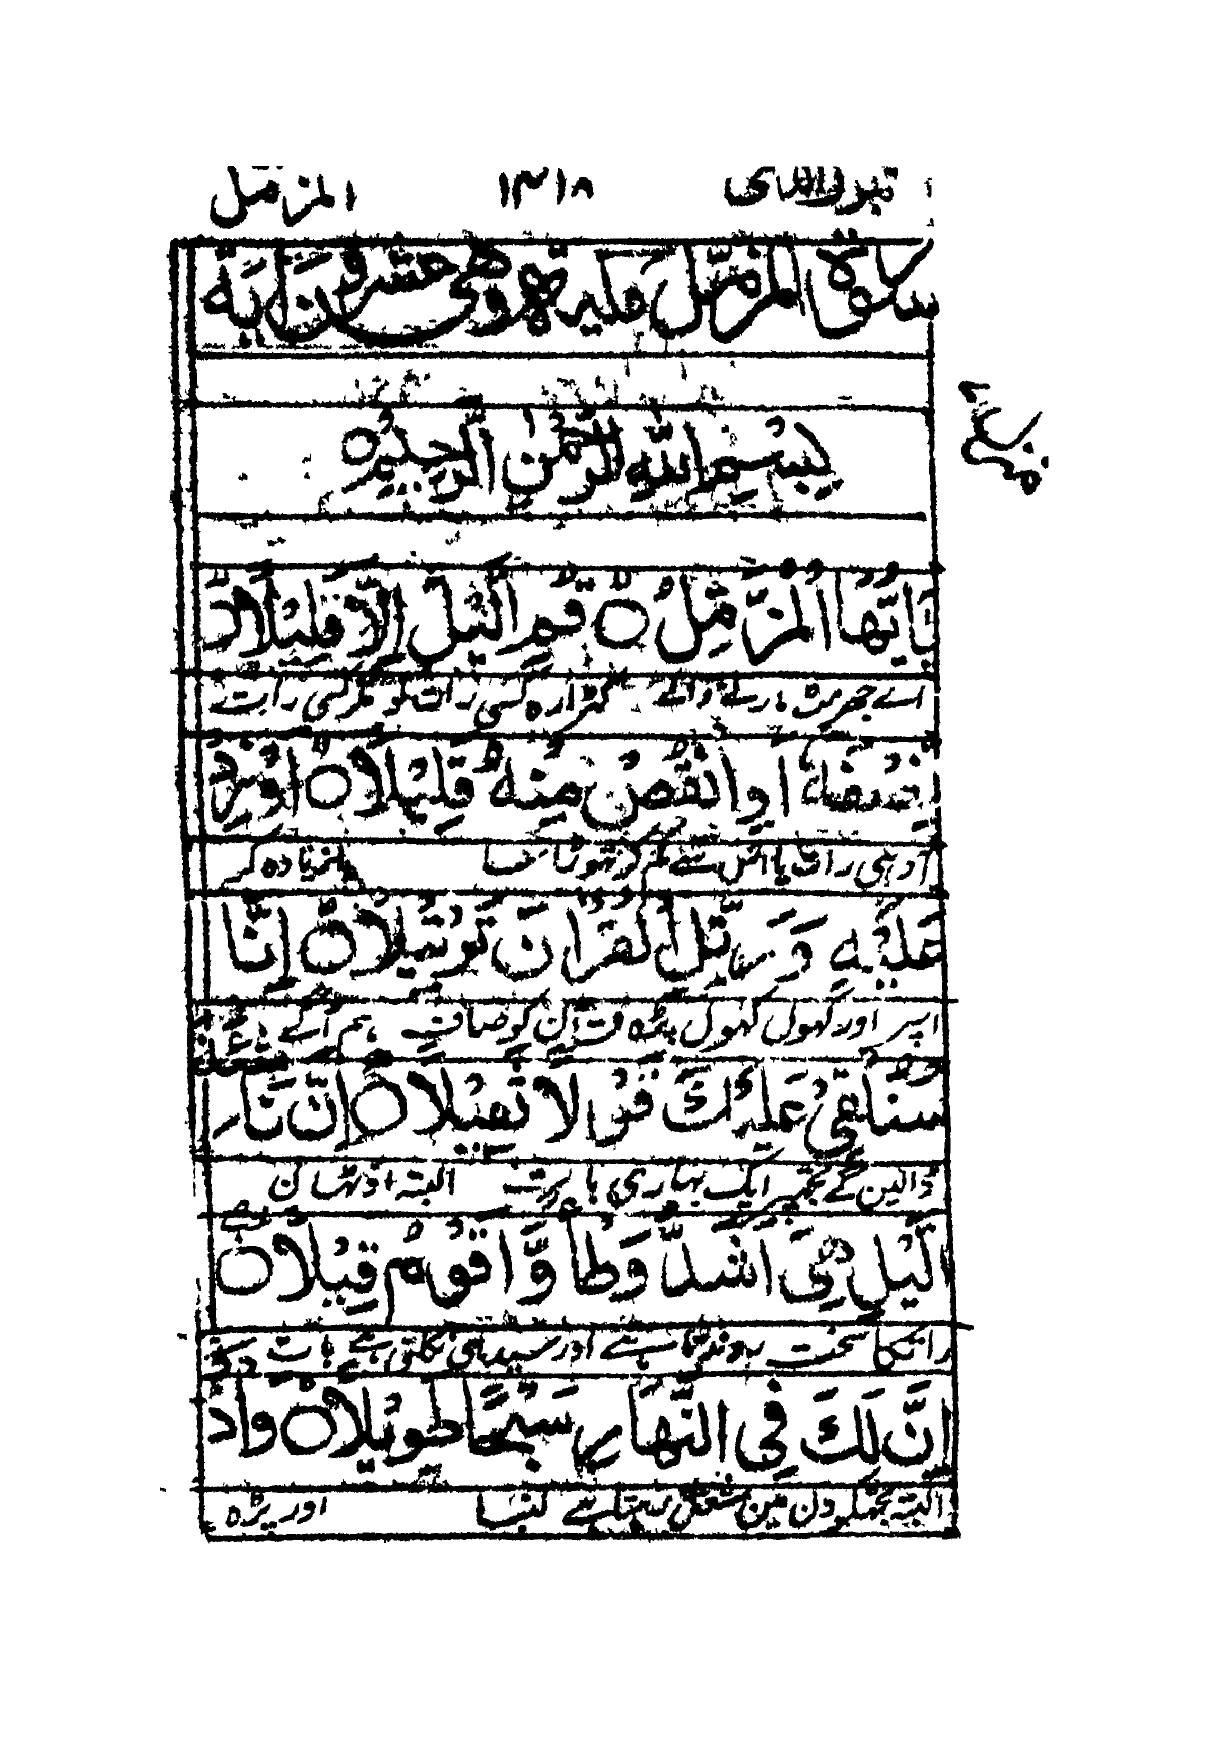 تبرك الذى ١٣١٨ المزمل
سورة المزمل مكية وهى عشرون اية
بِسْمِ اللهِ الرَّحْمٰنِ الرَّحِيْمِ ○
يٰاَيُّهَا الْمُزَّمِّلُ ○ قُمِ الَّيْلَ اِلَّا قَلِيْلًا ○
اے جھرمٹ مارنے والے کھڑا رہ کسی رات کو مگر کسی رات
نِصْفَهٗ اَوِ انْقُصْ مِنْهُ قَلِيْلًا ○ اَوْ زِدْ
آدھی رات یا اس سے کم کر تھوڑا سا یا زیادہ کر
عَلَيْهِ وَرَتِّلِ الْقُرْاٰنَ تَرْتِيْلًا ○ اِنَّا
اسپر اور کھول کھول پڑہ قرآن کو صاف ہم آگے
سَنُلْقِيْ عَلَيْكَ قَوْلًا ثَقِيْلًا ○ اِنَّ نَاشِ
ڈالین گے تجھپر ایک بھاری بات البتہ اوٹھان
الَّيْلِ هِيَ اَشَدُّ وَطْأً وَّاَقْوَمُ قِيْلًا ○
سخت روندتا ہے اور سیدھی نکلتی ہے بات
اِنَّ لَكَ فِى النَّهَارِ سَبْحًا طَوِيْلًا ○ وَاذْ
البتہ تجھکو دن مین شغل رہتا ہے لنبا اور پڑہ